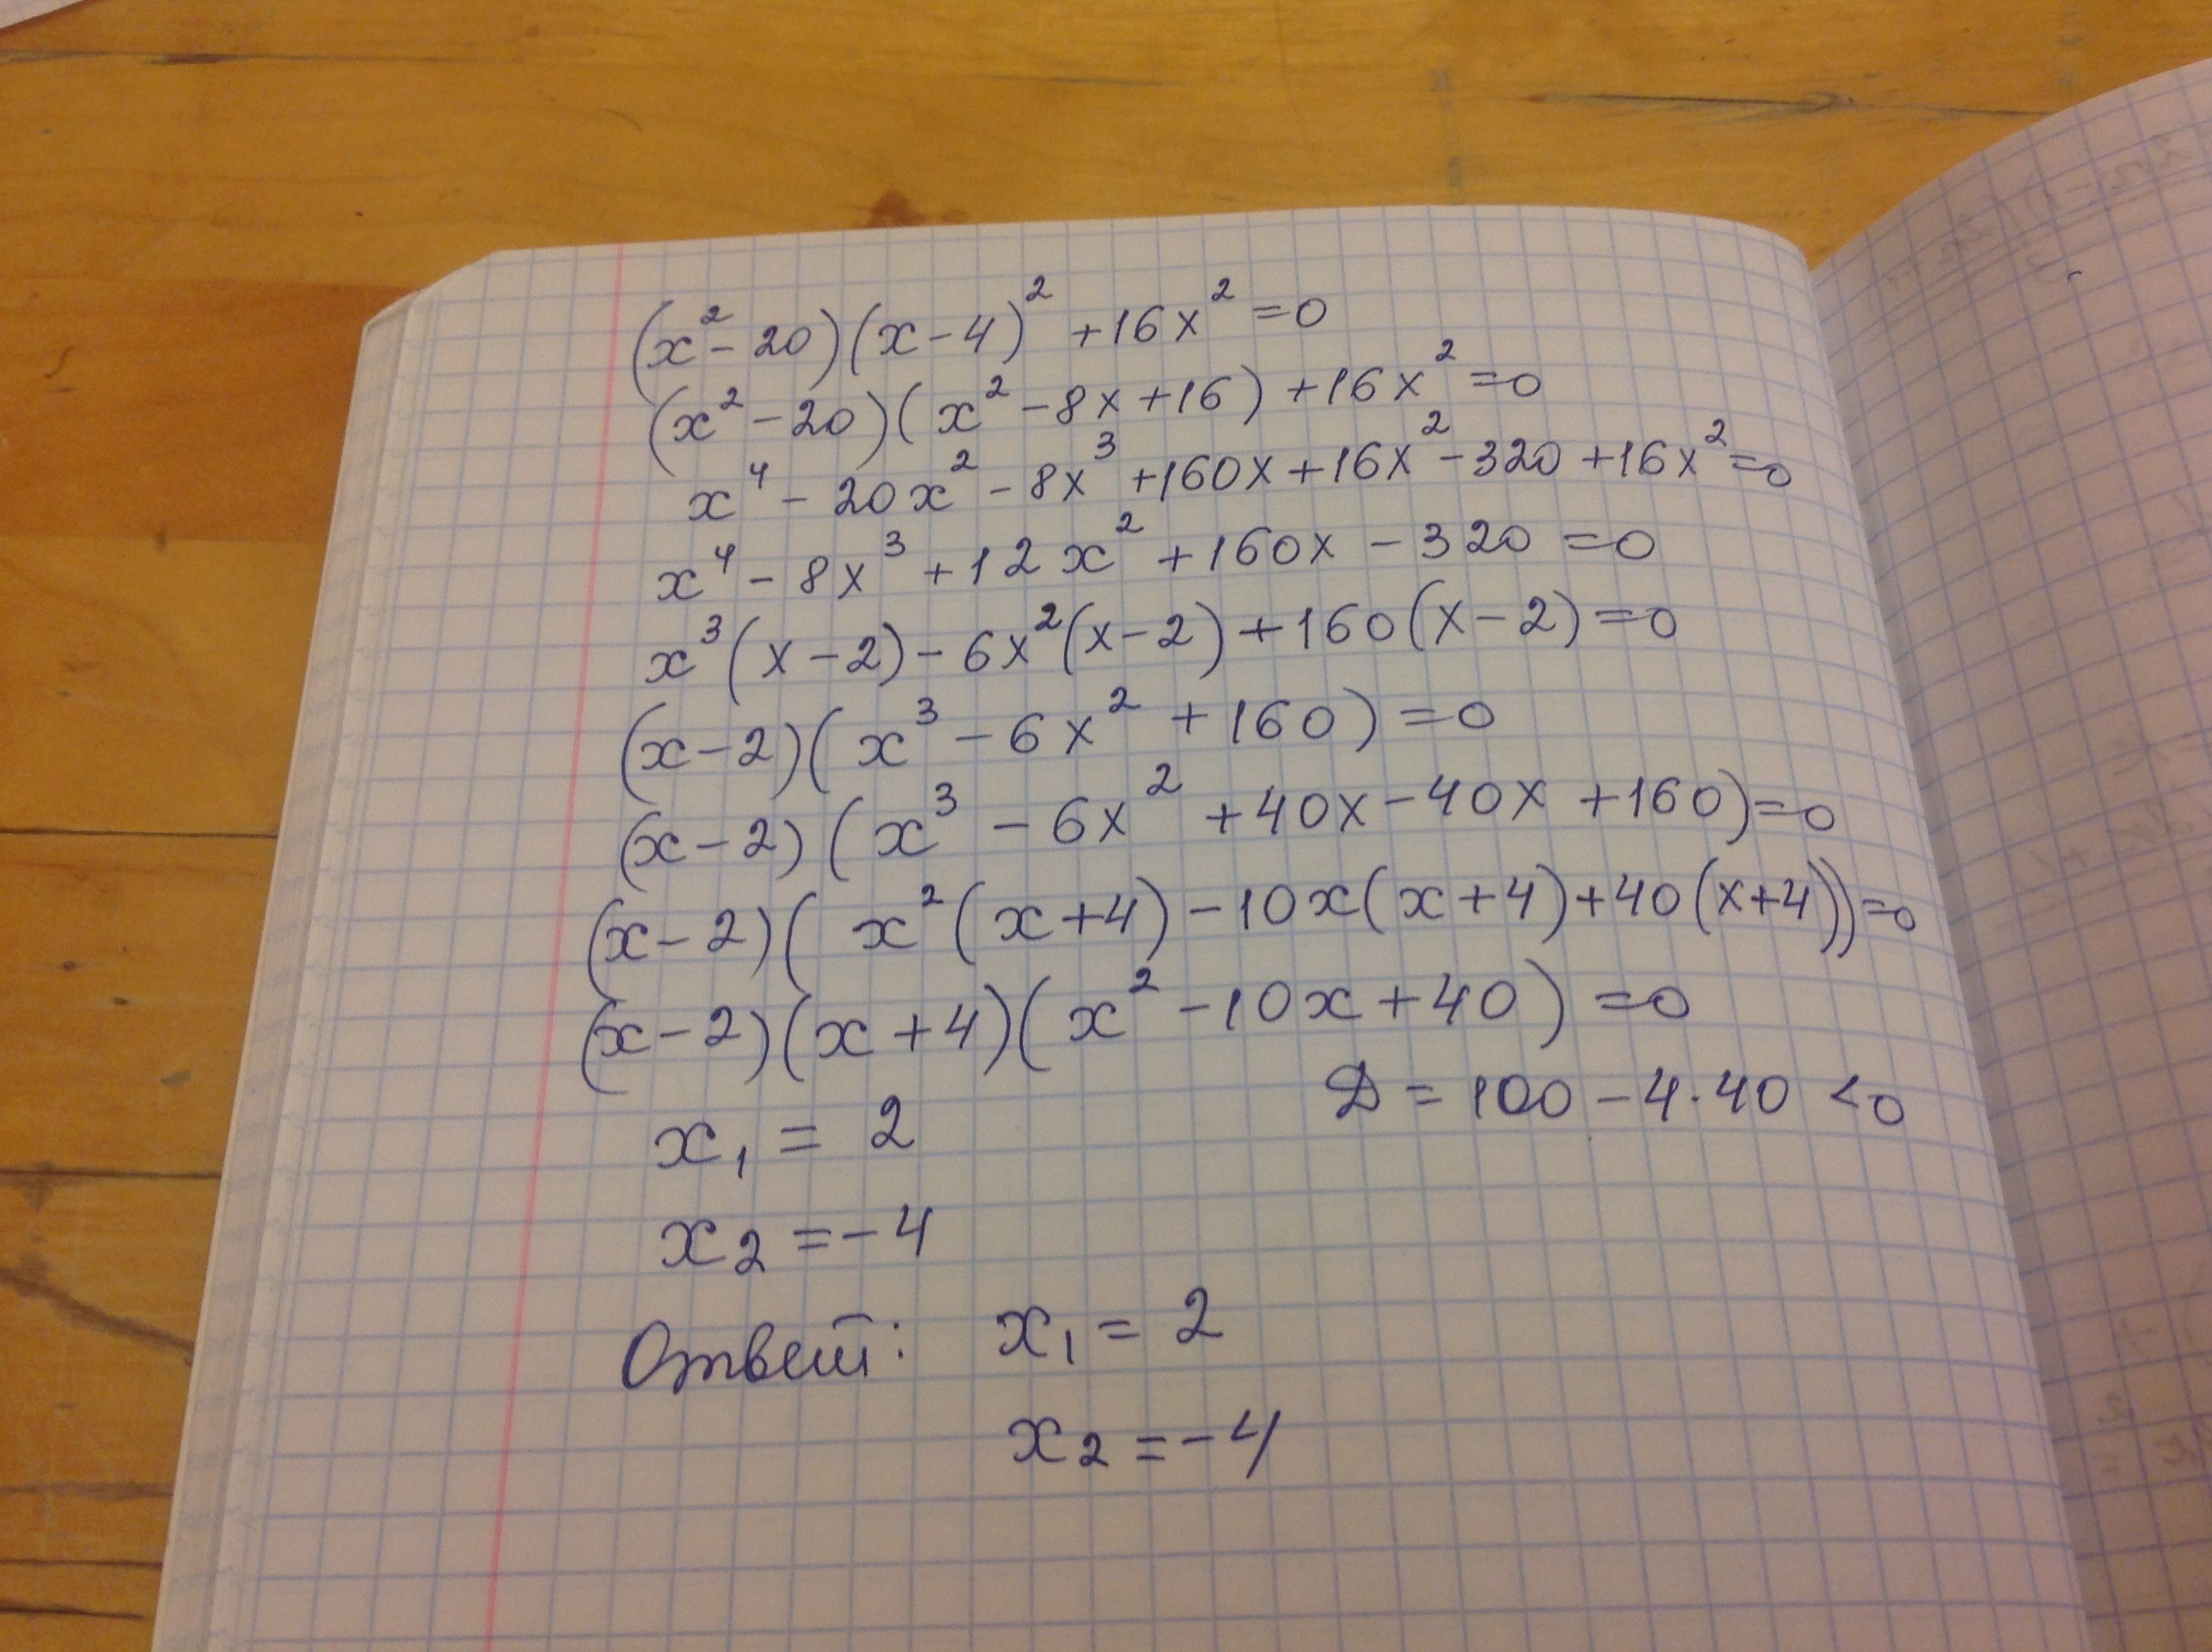 (x² - 20)(x - 4)² + 16x² = 0
(x² - 20)(x² - 8x + 16) + 16x² = 0
x⁴ - 20x² - 8x³ + 160x + 16x² - 320 + 16x² = 0
x⁴ - 8x³ + 12x² + 160x - 320 = 0
x³(x - 2) - 6x²(x - 2) + 160(x - 2) = 0
(x - 2)(x³ - 6x² + 160) = 0
(x - 2)(x³ - 6x² + 40x - 40x + 160) = 0
(x - 2)(x²(x + 4) - 10x(x + 4) + 40(x + 4)) = 0
(x - 2)(x + 4)(x² - 10x + 40) = 0
x₁ = 2 Д = 100 - 4·40 < 0
x₂ = -4
Ответ: x₁ = 2
x₂ = -4